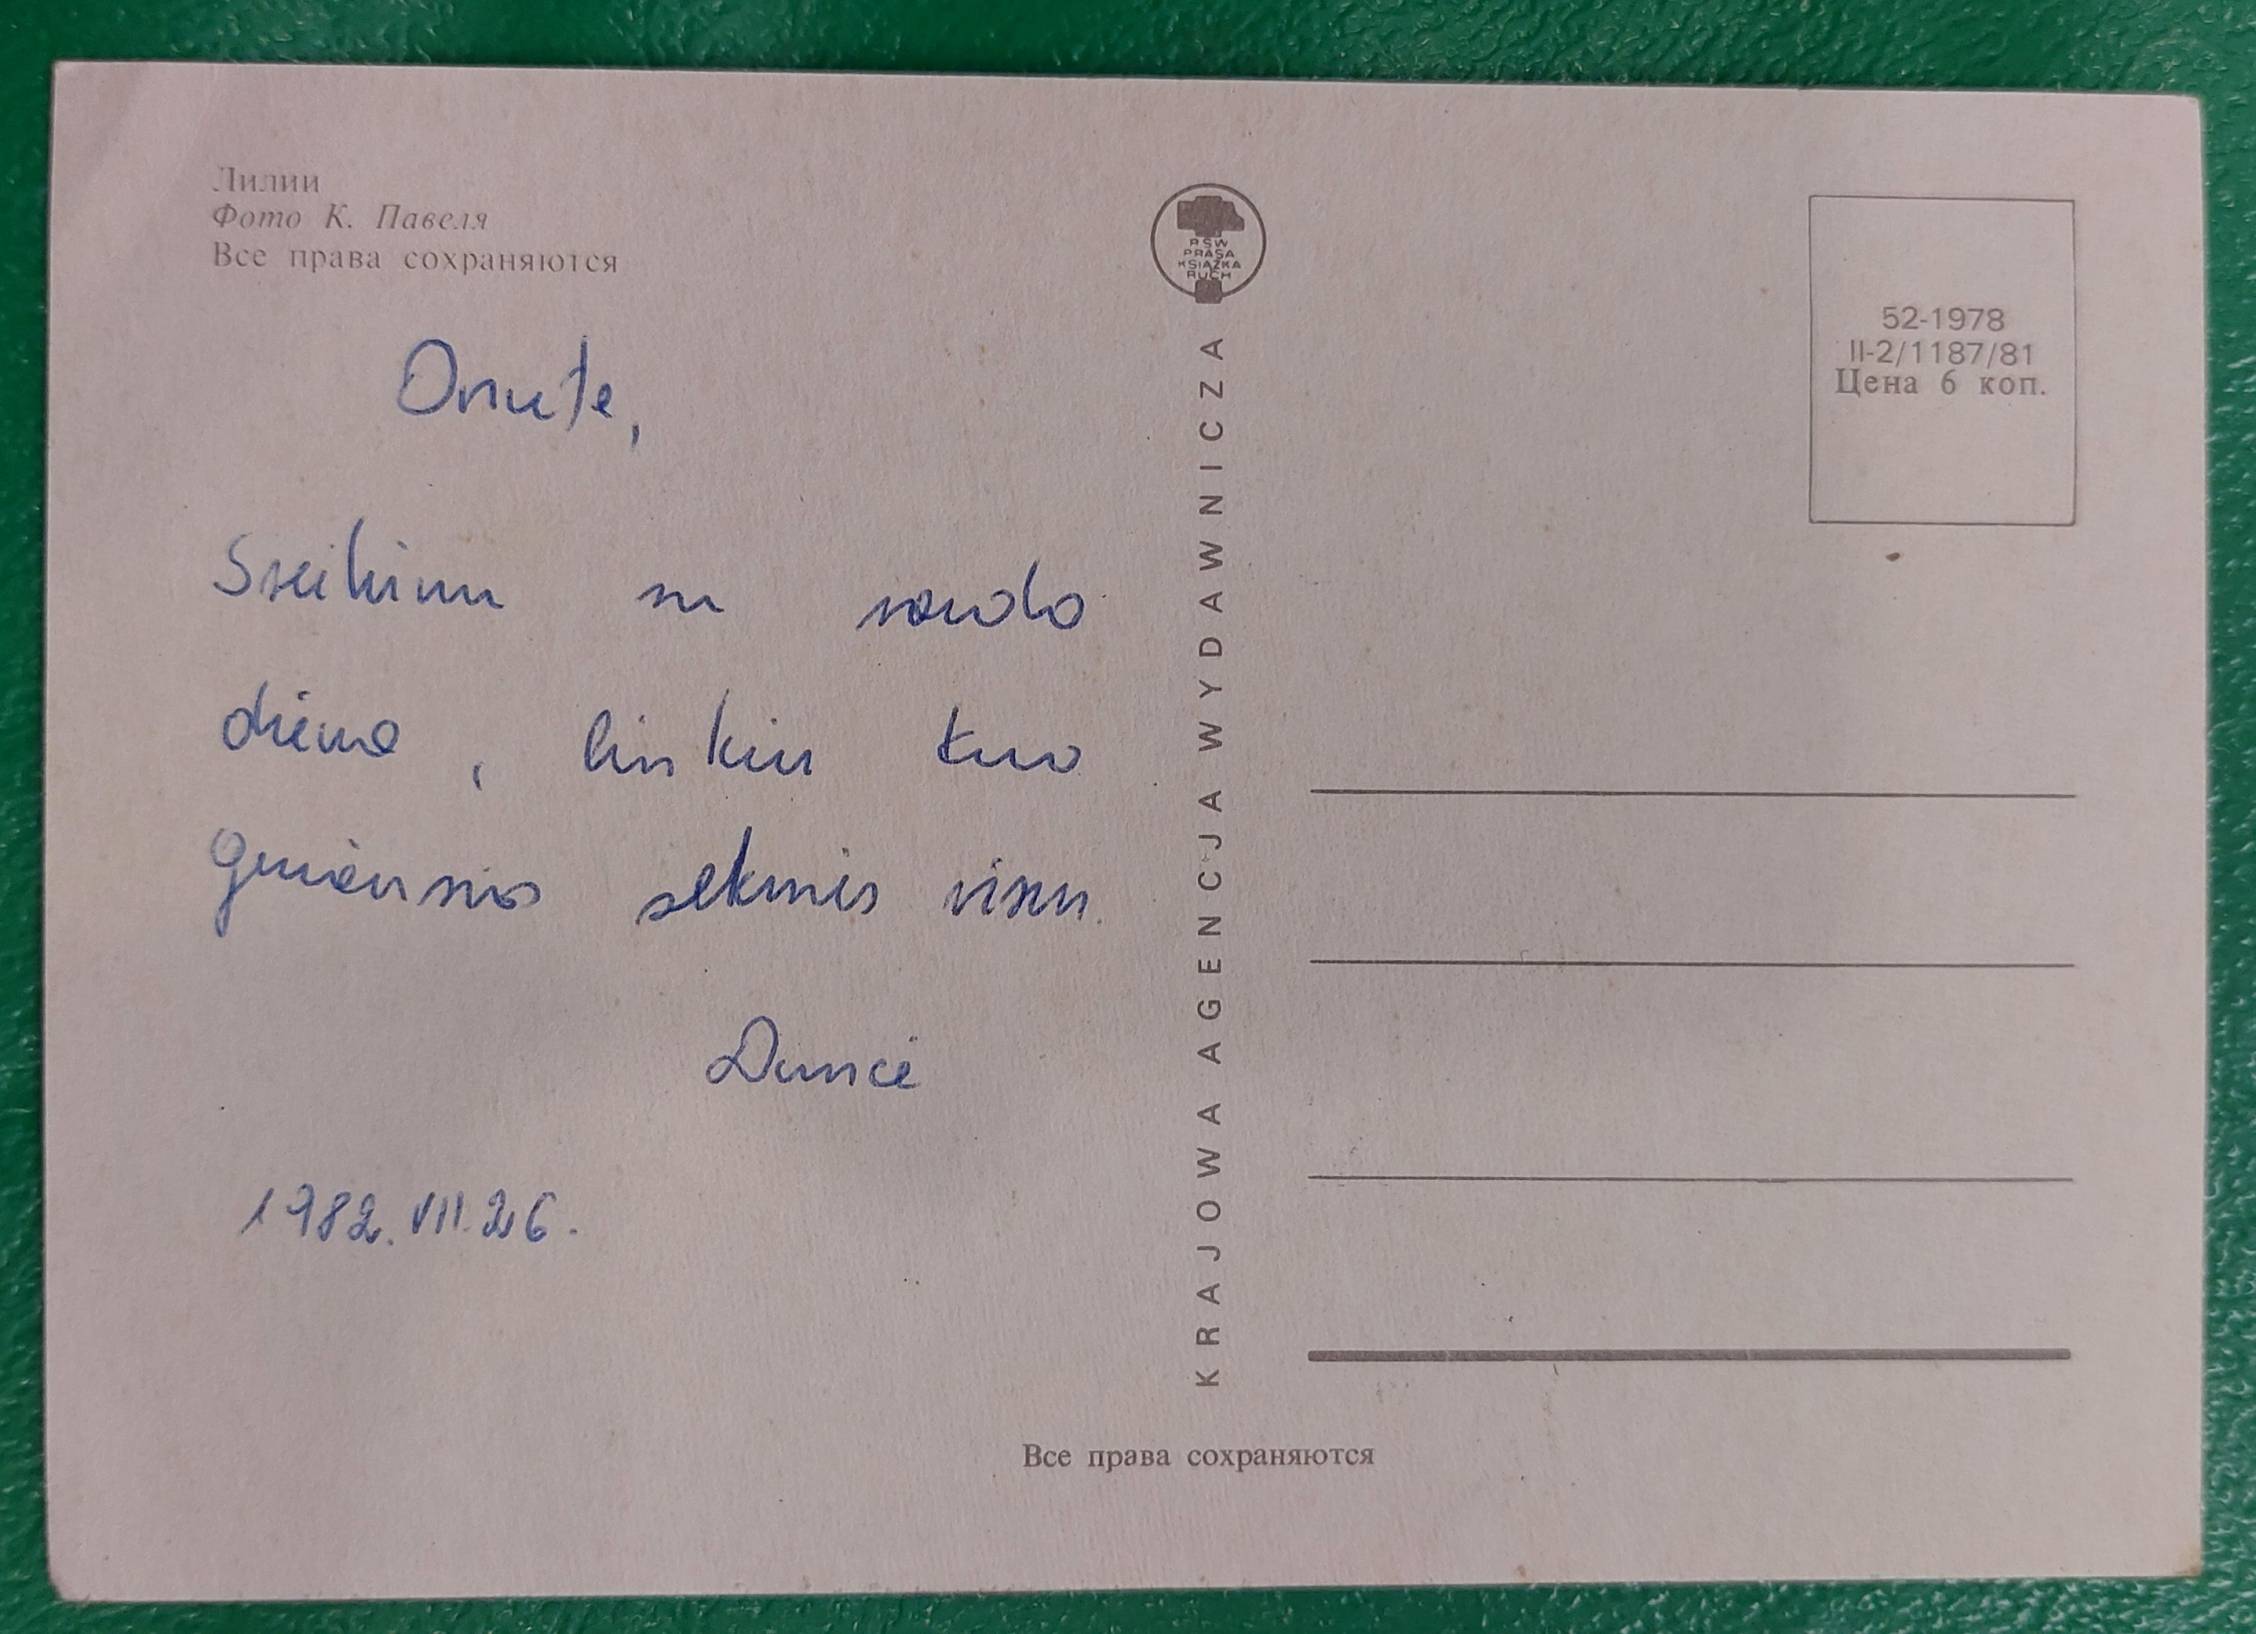 Лилии
Фото К. Павеля
Все права сохраняются
Onute,
Sveikinu su vardo
diena, linkiu kuo
geriausios sėkmės visur.
Dancė
1982.VII.26.
RSW
PRASA
KSIĄŻKA
RUCH
KRAJOWA AGENCJA WYDAWNICZA
52-1978
II-2/1187/81
Цена 6 коп.
Все права сохраняются